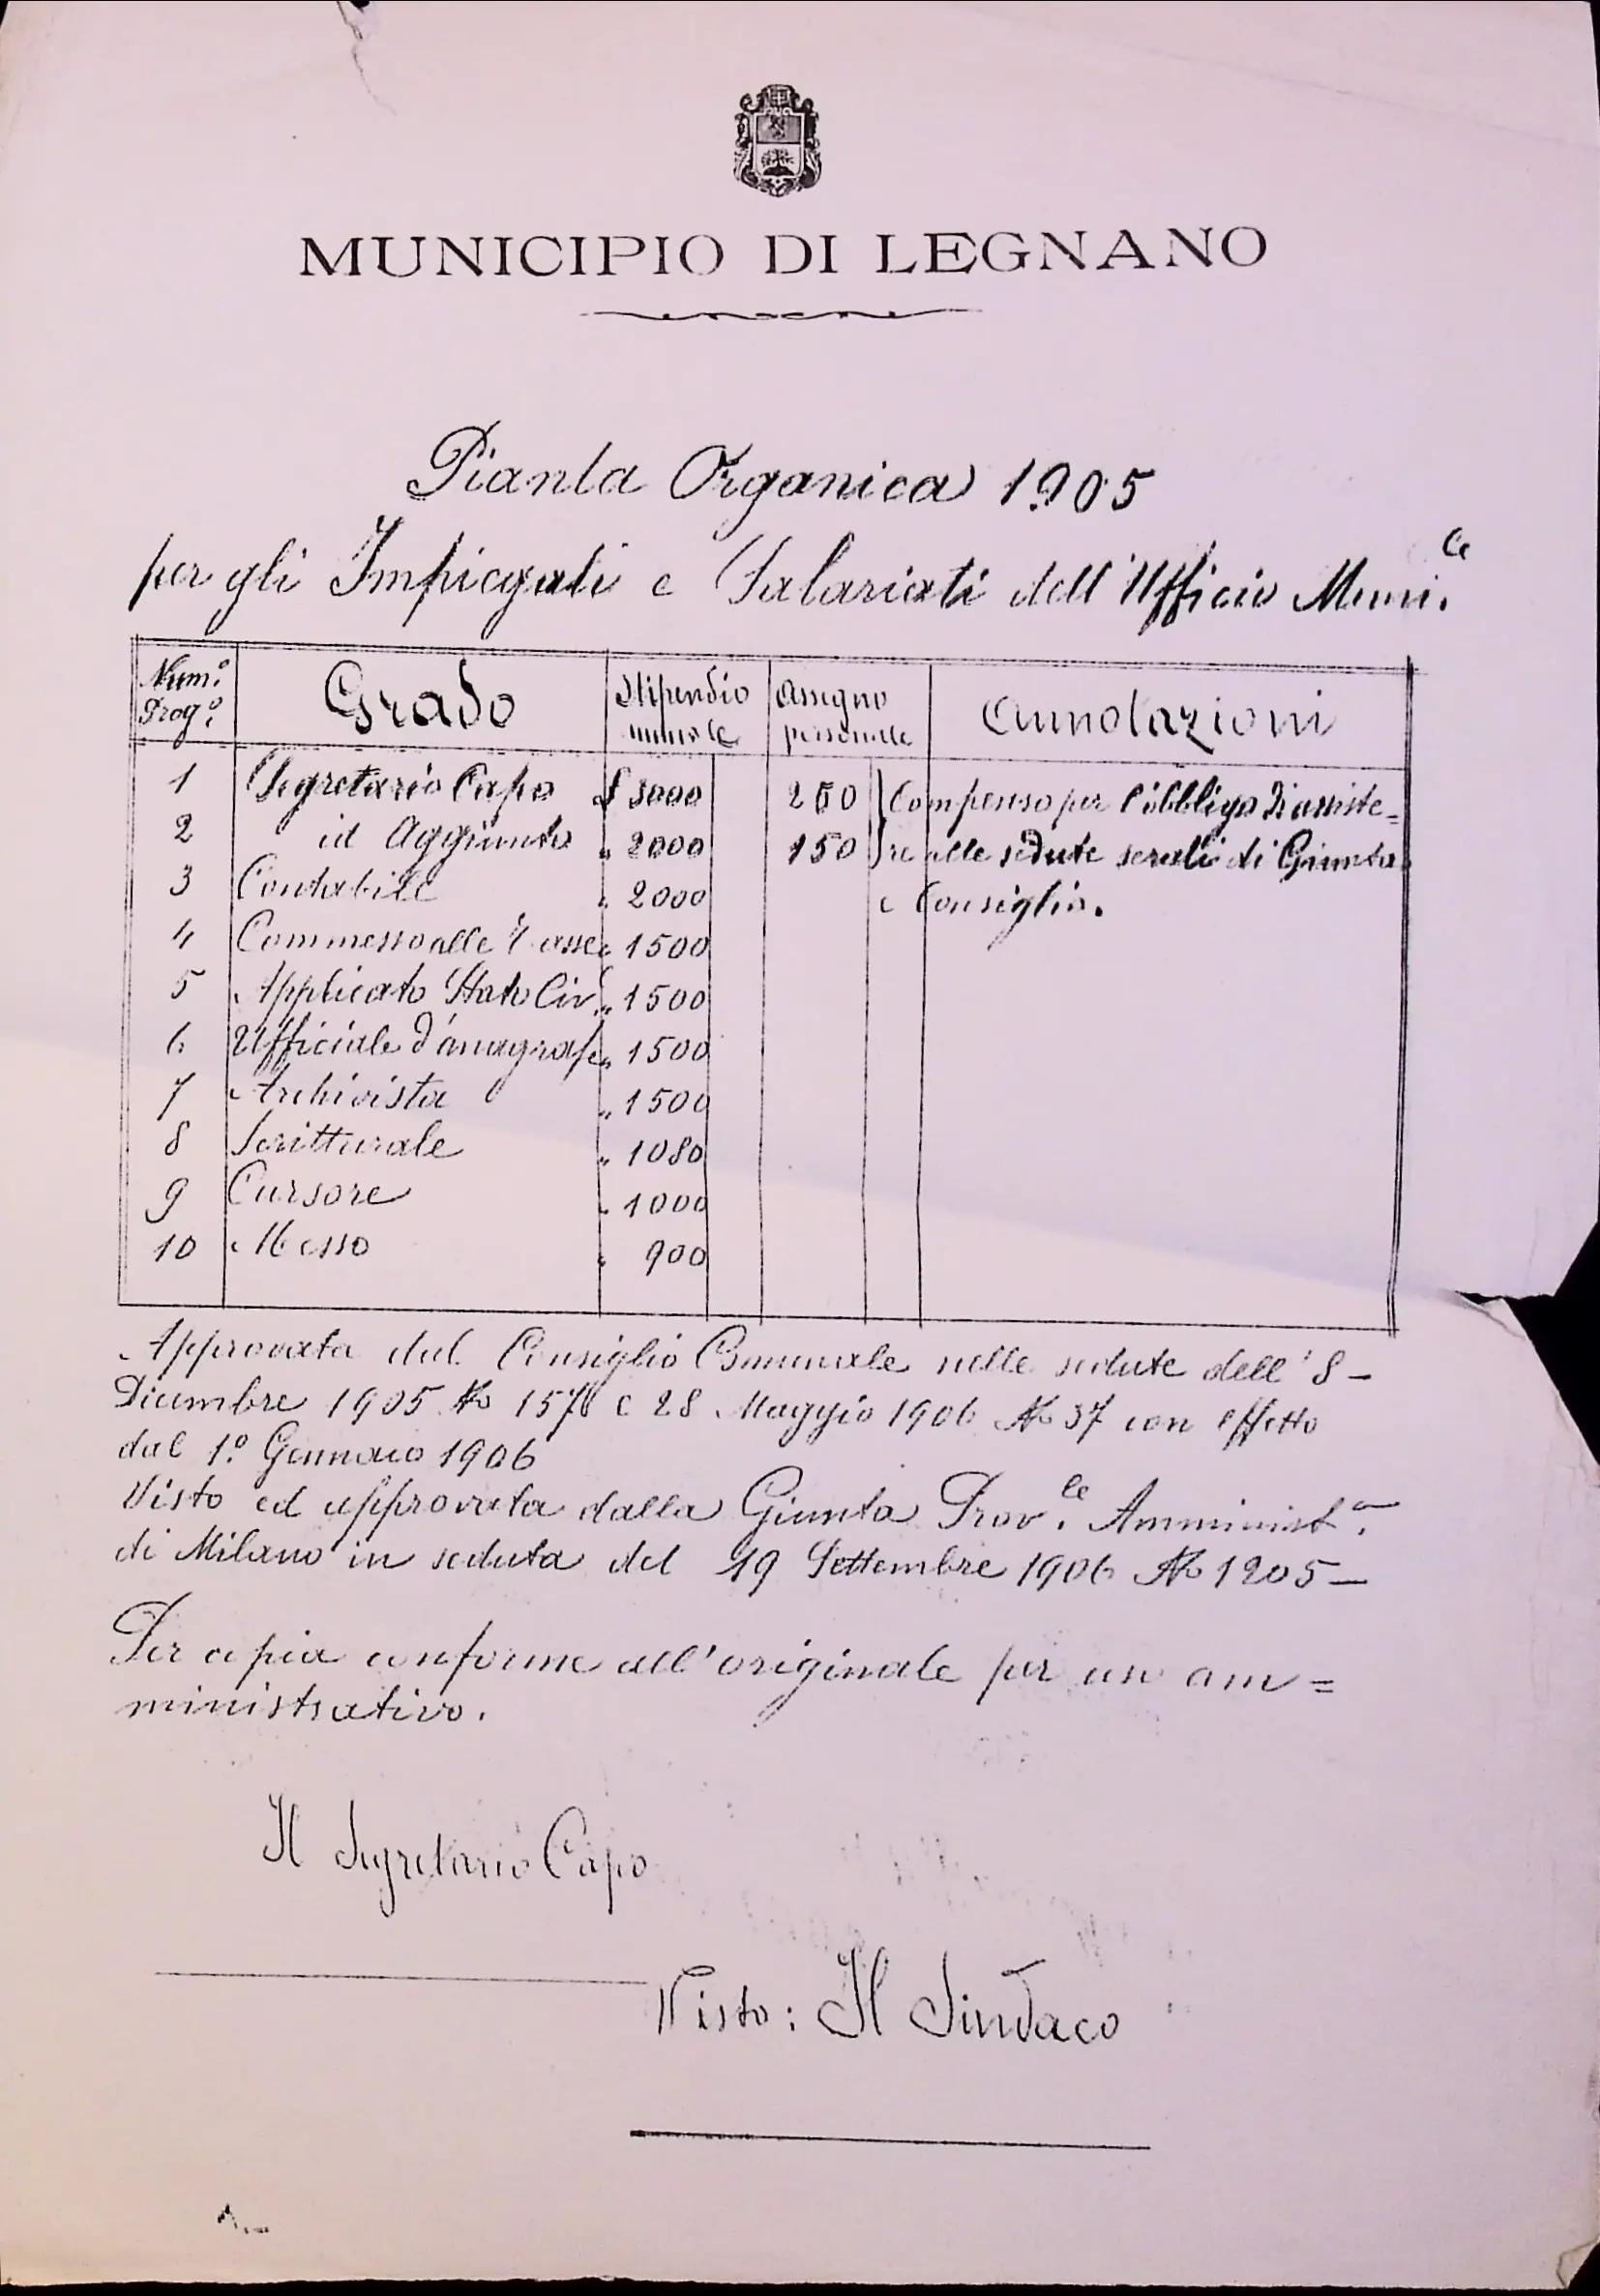 MUNICIPIO DI LEGNANO
Pianta Organica 1905
per gli Impiegati e Salariati dell'Ufficio Muni.le
Num.° Prog.° Grado Stipendio annuale Assegno personale Annotazioni
1 Segretario Capo £ 3000 250 Compenso per l'obbligo d'assiste=
2 id Aggiunto " 2000 150 re alle sedute serali di Giunta
3 Contabile " 2000 e Consiglio.
4 Commesso alle Tasse " 1500
5 Applicato Stato Civ. " 1500
6 Ufficiale d'anagrafe " 1500
7 Archivista " 1500
8 Scritturale " 1080
9 Cursore " 1000
10 Messo " 900
Approvata dal Consiglio Comunale nelle sedute dell' 8 –
Dicembre 1905 No e 28 Maggio 1906 No 37 con effetto
dal 1.° Gennaio 1906
Visto ed approvata dalla Giunta Prov.le Amminist.a
di Milano in seduta del 19 Settembre 1906 No 1205 –
Per copia conforme all'originale per uso am=
ministrativo.
Il Segretario Capo
Visto: Il Sindaco